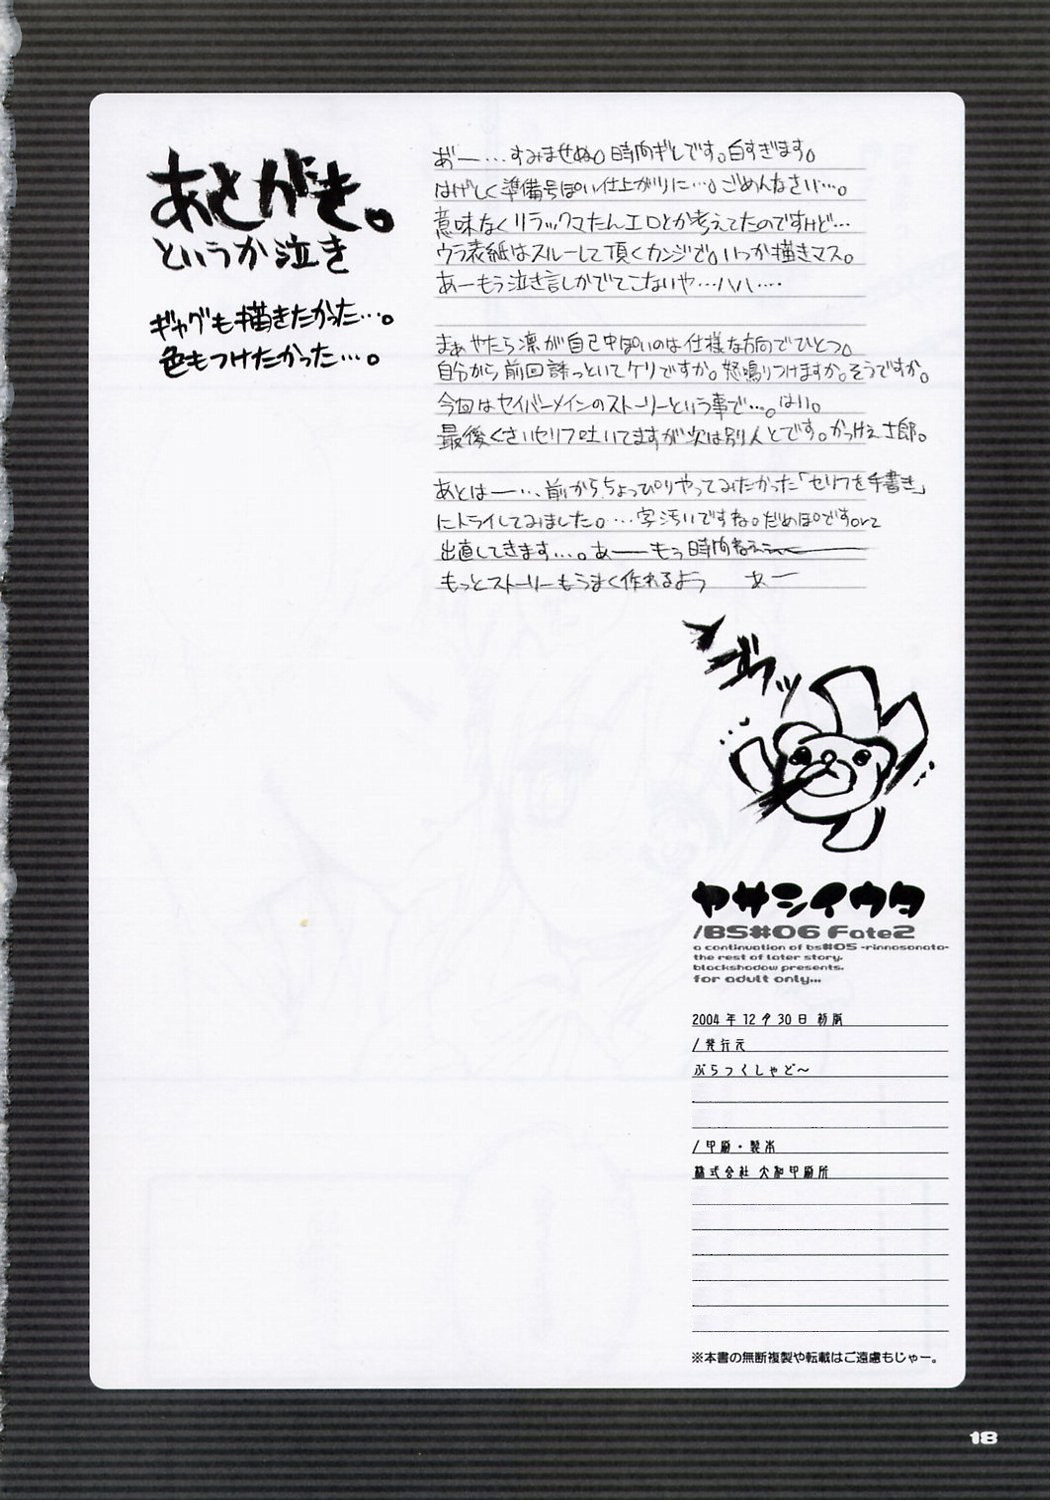 あとがき。
というか泣き
ギャグも描きたかった…。
色もつけたかった…。
あ゛ー…すみませぬ。時間ギレです。白すぎます。
はげしく準備号ぽい仕上がりに…。ごめんなさい…。
意味なくリラックマたんエロとか考えてたのですけど…
ウラ表紙はスルーして頂くカンジで。いつか描きマス。
あーもう泣き言しかでてこないや…ハハ…
まぁやたら凛が自己中ぽいのは仕様な方向でひとつ。
自分から前回誘っといてケリですか。怒鳴りつけますか。そうですか。
今回はセイバーメインのストーリーという事で…。はい。
最後くさいセリフ吐いてますが次は別人とです。かっけぇ士郎。
あとはー…、前からちょっぴりやってみたかった「セリフを手書き」
にトライしてみました。…字汚いですね。だめぽですorz
出直してきます…。あーーもぅ時間ねぇぇ
もっとストーリーもうまく作れるよう あー
ヤサシイウタ
/BS#06 Fate2
a continuation of bs#05 -rinnosonata-
the rest of later story.
blackshadow presents.
for adult only...
2004年12月30日 初版
/発行元
ぶらっくしゃど～
/印刷・製本
株式会社 大和印刷所
※本書の無断複製や転載はご遠慮もじゃー。
18